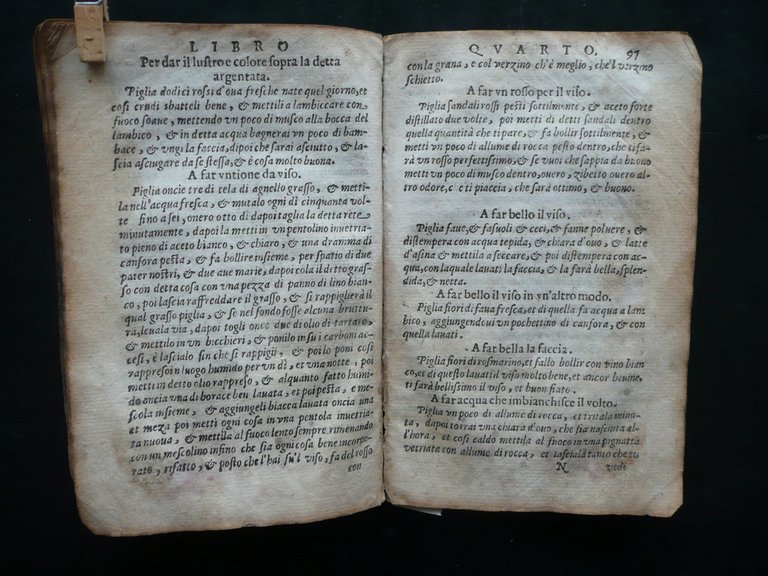 LIBRO
Per dar il lustro e colore sopra la detta
argentata.
Piglia dodici rossi d'oua fresche nate quel giorno, et
cosi crudi sbatteli bene, & mettili a lambiccare con
fuoco soaue, mettendo vn poco di musco alla bocca del
lambico, & in detta acqua bagnerai vn poco di bam-
bace, & vngi la faccia, dipoi che sarai asciutto, & la-
scia asciugare da se stessa, & è cosa molto buona.
A far vntione da viso.
Piglia oncie tre di tela di agnello grasso, & metti-
la nell'acqua fresca, & mutalo ogni dì cinquanta vol-
te fino a sei, onero otto dì dapoi taglia la detta rete
minutamente, dapoi la metti in vn pentolino inuetria-
to pieno di aceto bianco, & chiaro, & vna dramma di
canfora pesta, & fa bollire insieme, per spatio di due
pater nostri, & due aue marie, dapoi cola il detto gras-
so con detta cosa con vna pezza di panno di lino bian-
co, poi lascia raffreddare il grasso, & si rappiglierà il
qual grasso piglia, & se nel fondo fosse alcuna bruttu-
ra, leuala via, dapoi togli once due di olio di tartaro,
& mettilo in vn bicchieri, & ponilo in su i carboni ac-
cesi, è lascialo fin che si rappigli, & poilo poni così
rappreso in luogo humido per vn dì, et vna notte, poi
metti in detto olio rappreso, & alquanto fatto humi
do oncia vna di borace ben lauata, et poi pesta, e me-
scola insieme, & aggiungeli biacca lauata oncia vna
et meza poi metti ogni cosa in vna pentola inuetria-
ta nuoua, & mettila al fuoco lento sempre rimenando
con vn mescolino infino che sia ogni cosa bene incorpo-
rato, rifatto, & posto che l'hai su'l viso, fa del rosso
con
QVARTO. 97
con la grana, e col verzino ch'è meglio, che'l verzino
schietto.
A far vn rosso per il viso.
Piglia sandali rossi pesti sottilmente, & aceto forte
distillato due volte, poi metti di detti sandali dentro
quella quantità che ti pare, & fa bollir sottilmente, &
metti vn poco di allume di rocca pesto dentro, che ti fa-
rà vn rosso perfettissimo, & se vuoi che sappia da buono
metti vn poco di musco dentro, ouero, zibetto ouero al-
tro odore, c e ti piaccia, che sarà ottimo, & buono.
A far bello il viso.
Piglia faue, & fasuoli & ceci, & fanne poluere, &
distempera con acqua tepida, & chiara d'ouo, & latte
d'asina & mettila a seccare, & poi distempera con ac-
qua, con laquale lauati la faccia, & la farà bella, splen-
dida, & netta.
A far bello il viso in vn'altro modo.
Piglia fiori di faua fresca, et di quella fa acqua a lam
bico, aggiungendoui vn pochettino di canfora, & con
quella lauati.
A far bella la faccia.
Piglia fiori di rosmarino, et fallo bollir con vino bian
co, et di questo lauati il viso molto bene, et ancor bouine,
ti farà bellissimo il viso, et buon fiato.
A far acqua che imbianchisce il volto.
Piglia vn poco di allume di rocca, et tritala minu-
ta, dapoi torrai vna chiara d'ouo, che sia nasciuta al-
l'hora, et così caldo mettila al fuoco in vna pignatta
vetriata con allume di rocca, et lasciala tanto che tu
N vedi